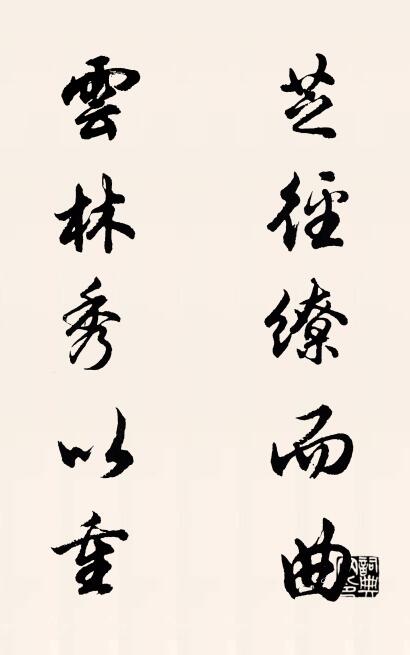 芝徑繚而曲
雲林秀以重
詞典